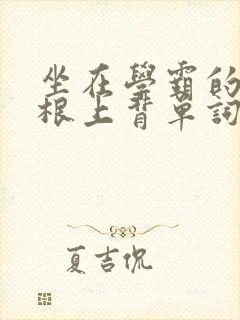 坐在學霸的
根上背單詞
夏吉侃